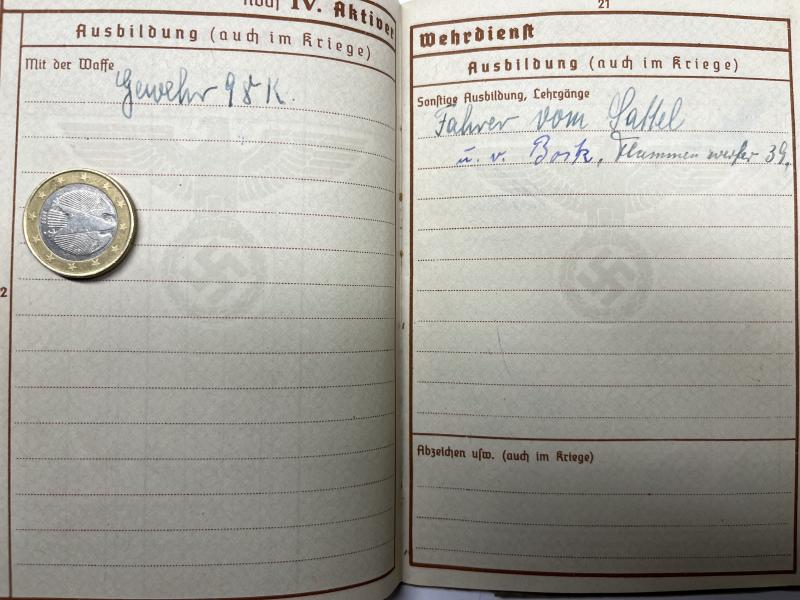 IV. Aktiver
Ausbildung (auch im Kriege)
Mit der Waffe
Gewehr 98 K.
2
21
Wehrdienst
Ausbildung (auch im Kriege)
Sonstige Ausbildung, Lehrgänge
Fahrer vom Sattel
u. v. Bock, Flammenwerfer 39.
Abzeichen usw. (auch im Kriege)